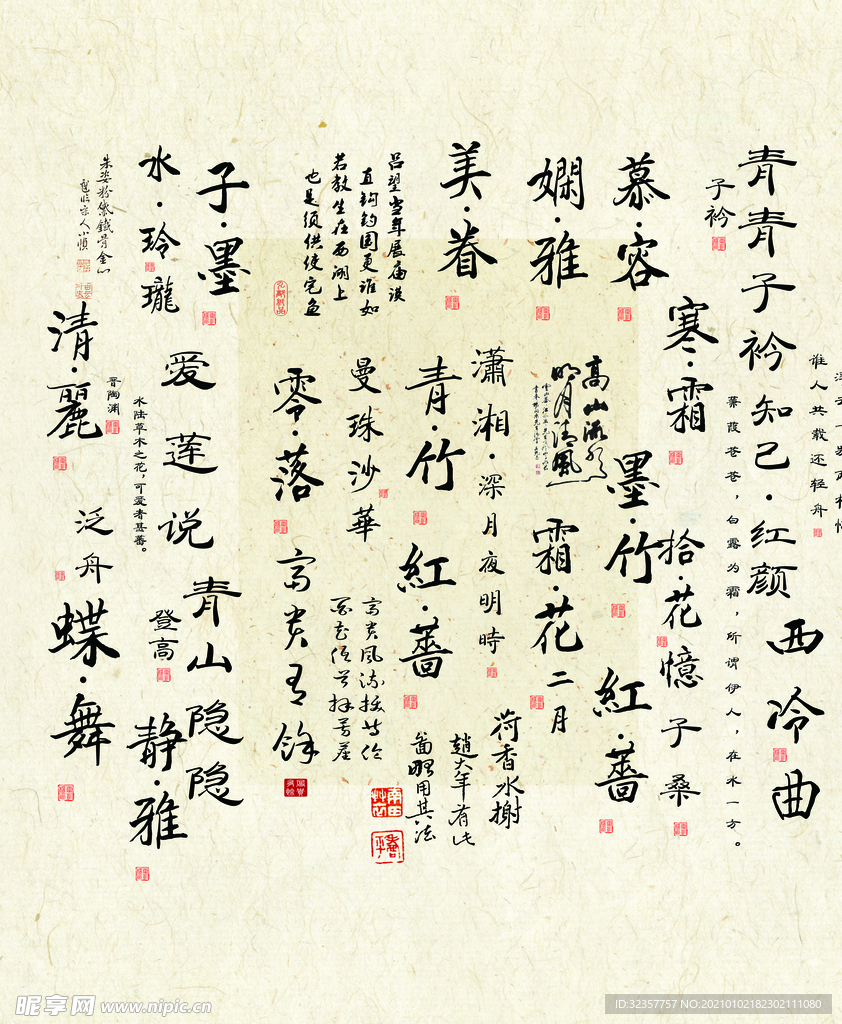 谁人共载还轻舟
青青子衿知己·红颜
西冷曲
子衿
蒹葭苍苍，白露为霜，所谓伊人，在水一方。
寒·霜
拾·花憶子桑
慕·容
墨·竹
紅·薔
嫻·雅
高山流水
明月清風
霜·花二月
美·眷
瀟湘·深月夜明時
荷香水榭
趙大年有此
青·竹
紅·薔
吕望当年展庙谟
直钩钓国更谁如
若教生在西湖上
也是须供使宅鱼
曼珠沙華
零·落
富贵有余
子·墨
爱莲说
青山隐隐
水·玲瓏
晋陶渊
水陆草木之花，可爱者甚蕃。
登高
静·雅
清·麗
泛舟
蝶·舞
昵享网 www.nipic.cn
ID:32357757 NO:20210102182302111080